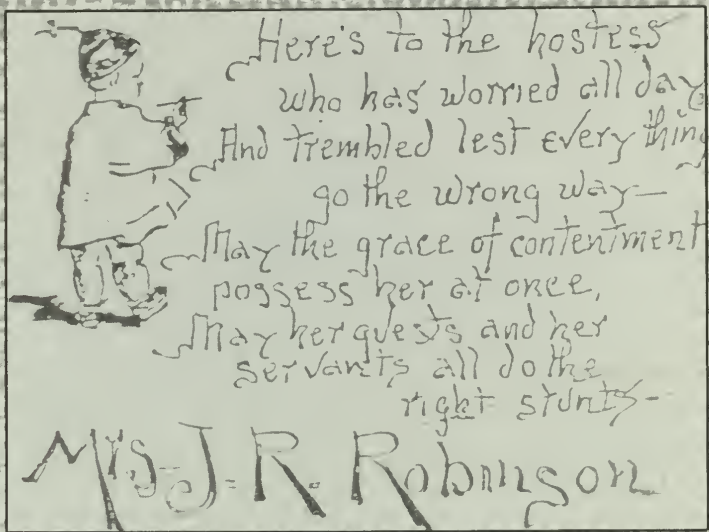 Here's to the hostess
who has worried all day,
And trembled lest every thing
go the wrong way—
May the grace of contentment
possess her at once,
May her guests and her
servants all do the
right stunts—
Mrs. J. R. Robinson